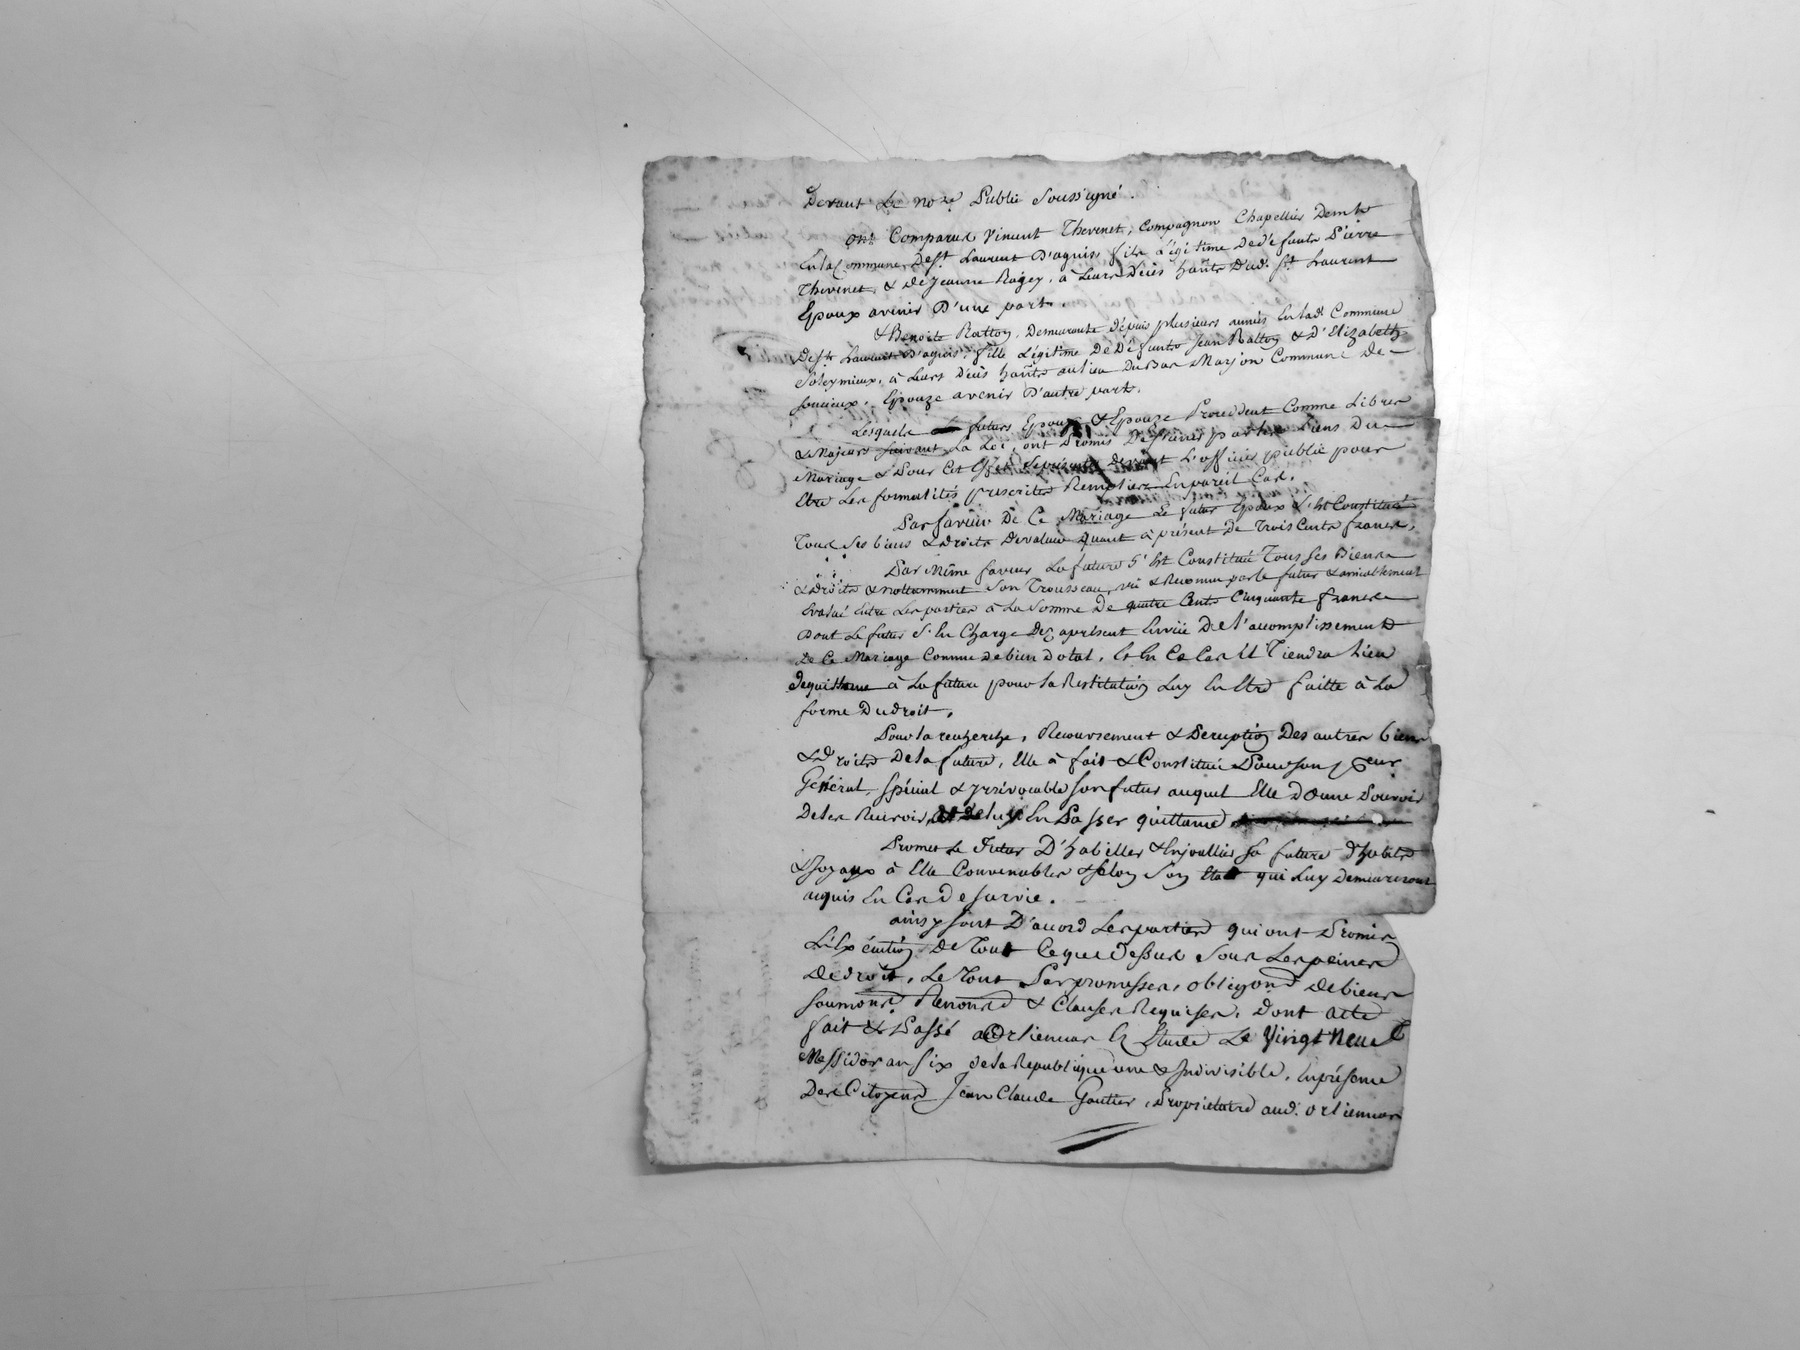 Devant Le no.re Public Soussigné.
Ont Comparus Vincent Thevenet, Compagnon Chapellier Demt
En la Commune De St Laurent D'agnis, fils Légitime De défunts Pierre
Thevenet, & De Jeanne Ragey, à Leurs Décès hañts Aud. St Laurent
Epoux avenir D'une part.
& Benoite Ratton, Demeurante depuis plusieurs années En lad. Commune
De St Laurent D'agnis, fille Légitime De Défunts Jean Ratton & D'Elizabeth
Soleymieux, à Leurs Décès hañts au lieu Du Marjon Commune De
Soucieux, Epouze avenir D'autre part.
Lesquels futurs Epoux & Epouze Procédent Comme Libres
& Majeurs suivant La Loi, ont Promis De s'unir par les Liens Du
Mariage & Pour Cet Effet se présenter devant L'officier public pour
Etre Les formalités prescrites Remplies En pareil Cas.
Par faveur De Ce Mariage Le futur Epoux s'est Constitué
Tous ses biens & droits Devaleur quant à présent De Trois Cents francs,
Par Même faveur La future S'est Constitué Tous ses Biens
& droits & nottamment Son Trousseau, vu & Reconnu par le futur & amiablement
Evalué Entre Les parties à La Somme De quatre Cents Cinquante francs
Dont Le futur S'En Charge Dez aprésent En vüe De L'accomplissement
De Ce Mariage Comme de bien dotal, & En Ce Cas Il Tiendra Lieu
de quittance à La future pour la Restitution Luy En Etre faitte à La
forme Du droit.
Pour la recherche, Recouvrement & Perception Des autres biens
& Droits De la future, Elle à fait & Constitué Pour son pceur
Général, spécial & yrrévocable son futur auquel Elle donne Pouvoir
De les Recevoir, & de luy En Passer quittance
Promet Le futur D'habiller & Enjoallier sa future d'habits
& Joyaux à Elle Convenables & selon son Etat qui Luy Demeureront
aquis En Cas De survie.
ainsy sont D'accord Les parties qui ont Promis
L'Exécution De Tout Ce que Dessus sous Les peines
De droit, Le Tout Par promesses, obligons De biens
soumons Renons & Clauses Requises, Dont acte
fait & Passé à Orliennas En Etude Le Vingt Neuf
Messidor an Six de la République une & Indivisible, En présence
Des Citoyens Jean Claude Gautier, Propriétaire aud. Orliennas